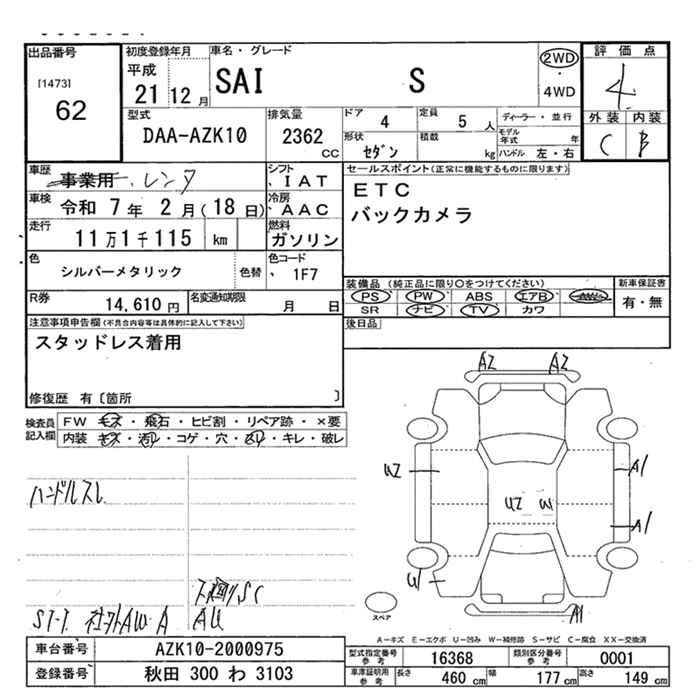 出品番号
[1473]
62
初度登録年月
平成
21 12 月
車名・グレード
SAI S
2WD
・
4WD
評価点
4
外装 内装
C B
型式
DAA-AZK10
排気量
2362
CC
ドア
4
定員
5 人
形状
セダン
積載
kg
ディーラー・並行
モデル年式 年
ハンドル 左・右
車歴
事業用 レンタ
シフト
、IAT
車検
令和 7 年 2 月(18 日)
冷房
、AAC
走行
11万1千115 km
燃料
ガソリン
色
シルバーメタリック
色替
色コード
、1F7
R券
14,610 円
名変通知期限
月 日
セールスポイント(正常に機能するものに限ります)
ETC
バックカメラ
装備品 (純正品に限り○をつけてください)
PS PW ABS エアB AW
SR ナビ TV カワ
新車保証書
有・無
後日品
注意事項申告欄(不具合内容等は具体的に記入して下さい)
スタッドレス着用
修復歴 有〔箇所 〕
検査員
記入欄
FW キズ・飛石・ヒビ割・リペア跡・×要
内装 キズ・汚レ・コゲ・穴・スレ・キレ・破レ
ハンドルスレ
下廻りSC
ST-T 社外AW A AU
A2 A2
U2
U2 W
A1
A1
W
A1
スペア
A-キズ E-エクボ U-凹み W-補修跡 S-サビ C-腐食 XX-交換済
車台番号
AZK10-2000975
登録番号
秋田 300 わ 3103
型式指定番号
参考
16368
類別区分番号
参考
0001
車庫証明用
参考
長さ 460 cm
幅 177 cm
高さ 149 cm